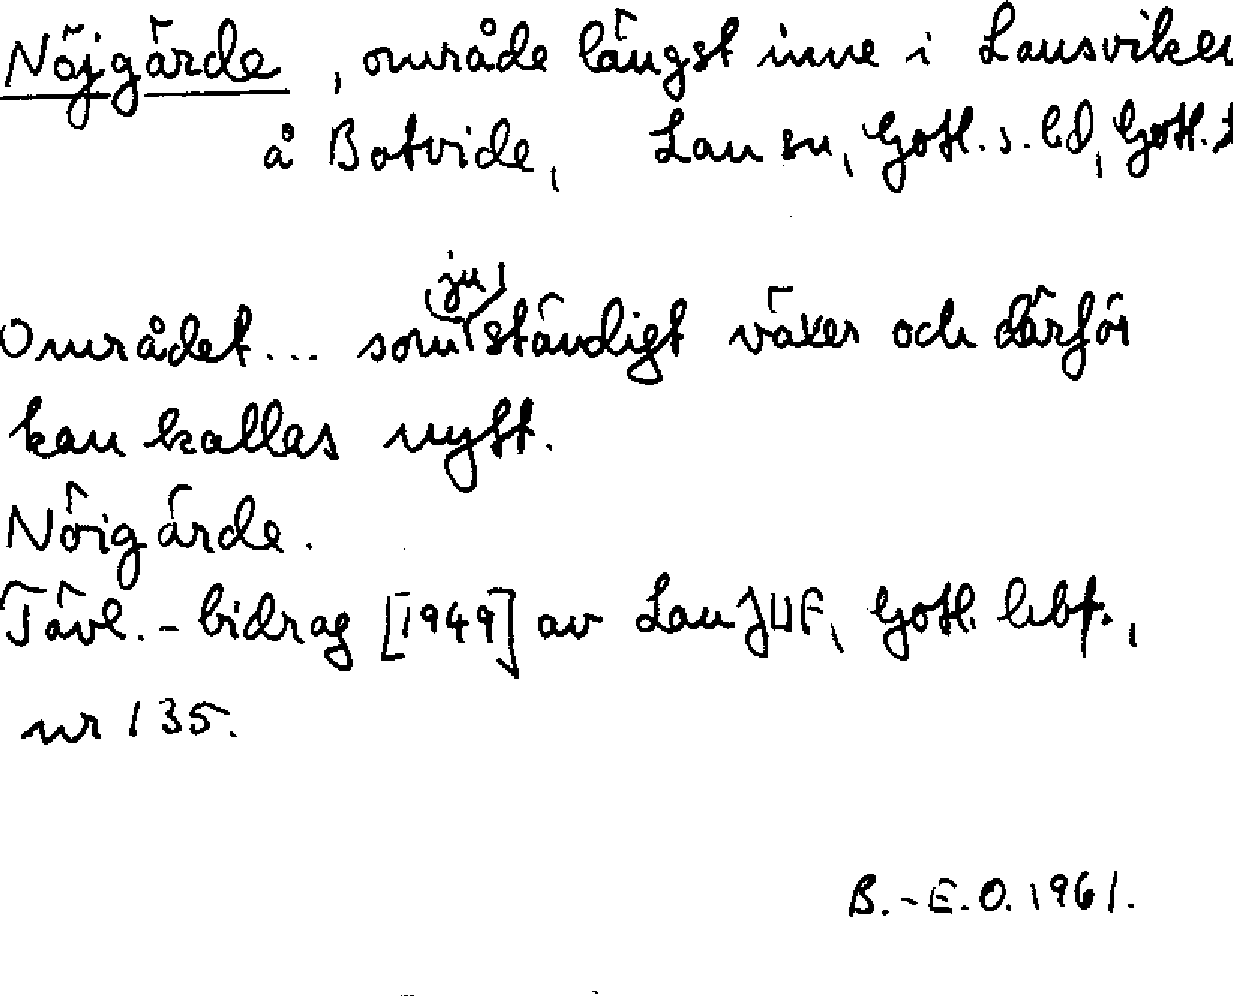 Nöjgärde, område längst inne i Lausviken
å Botvide, Lau sn, Gotl. s. hd, Gotl. l
Området... som (ju) ständigt växer och därför
kan kallas nytt.
Nöigärde.
Tävl.-bidrag [1949] av Lau JUF, Gotl. hbf.,
nr 135.
B.-E.O. 1961.